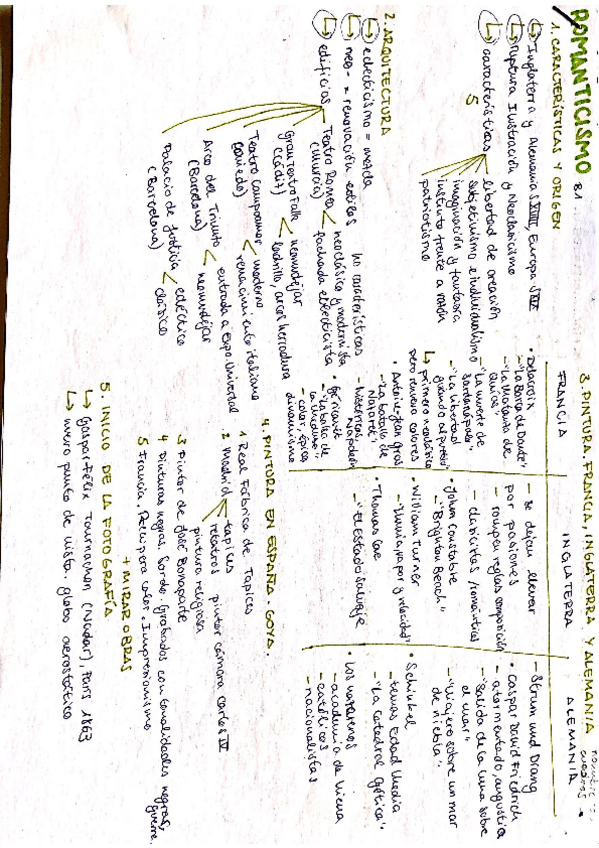 ROMANTICISMO
1. CARACTERÍSTICAS Y ORIGEN
↳ Inglaterra y Alemania SXVIII, Europa SXIX
↳ ruptura Ilustración y Neoclasicismo
↳ características
5
libertad de creación
subjetivismo e individualismo
imaginación y fantasía
instinto frente a razón
patriotismo
2. ARQUITECTURA
↳ eclecticismo = mezcla
↳ neo- = renovación estilos
↳ edificios
Teatro Romea
(Murcia)
neoclásico y modernista
fachada eclecticista
Gran Teatro Falla
(Cádiz)
neomudéjar
ladrillo, arcos herradura
Teatro Campoamor
(Oviedo)
moderno
renacimiento italiano
Arco del Triunfo
(Barcelona)
entrada a Expo. Universal
neomudéjar
Palacio de Justicia
(Barcelona)
ecléctico
clásico
3. PINTURA. FRANCIA, INGLATERRA Y ALEMANIA
FRANCIA
• Delacroix
- "La Barca de Dante"
- "La Matanza de
Quíos"
- "La muerte de
Sardanápalo"
- "La libertad
guiando al pueblo"
↳ primero napoleónico
pero renueva colores
• Antoine-Jean Gros
- "La batalla de
Nazaret"
- históricos,
Napoleón
• Géricault
- "La balsa de
la Medusa"
- color, épica,
dinamismo
INGLATERRA
- se dejan llevar
por pasiones
- rompen reglas composición
- clasicistas/románticas
• John Constable
- "Brighton Beach"
• William Turner
- "Lluvia, vapor y velocidad"
• Thomas Cole
- "El estado salvaje"
ALEMANIA
- Sturm und Drang
• Caspar David Friedrich
- atormentado, angustia
- "Salida de la luna sobre
el mar"
- "Viajero sobre un mar
de niebla"
• Schinkel
- temas Edad Media
- "La Catedral Gótica"
• Los nazarenos
- academia de Viena
- católicos
- nacionalistas
4. PINTURA EN ESPAÑA. GOYA.
1 Real Fábrica de Tapices
2 Madrid
tapices
retratos
pintor cámara Carlos IV
pintura religiosa
3 Pintor de José Bonaparte
4 Pinturas negras. Sordo. Grabados con tonalidades negras,
guerra.
5 Francia. Recupera color. Impresionismo
+ MIRAR OBRAS
5. INICIO DE LA FOTOGRAFÍA
↳ Gaspar-Félix Tournachon (Nadar), París 1863
↳ nuevo punto de vista. globo aerostático